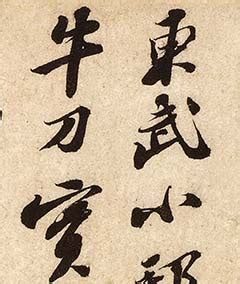 東武小邦
牛刀寳